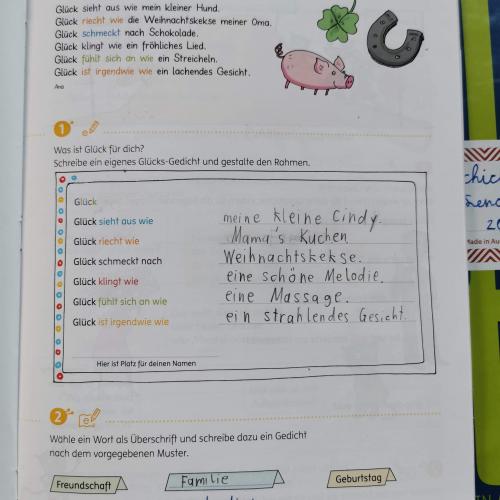 Glück sieht aus wie mein kleiner Hund.
Glück riecht wie die Weihnachtskekse meiner Oma.
Glück schmeckt nach Schokolade.
Glück klingt wie ein fröhliches Lied.
Glück fühlt sich an wie ein Streicheln.
Glück ist irgendwie wie ein lachendes Gesicht.
Ana
1
Was ist Glück für dich?
Schreibe ein eigenes Glücks-Gedicht und gestalte den Rahmen.
Glück
Glück sieht aus wie meine kleine Cindy.
Glück riecht wie Mama's Kuchen
Glück schmeckt nach Weihnachtskekse.
Glück klingt wie eine schöne Melodie.
Glück fühlt sich an wie eine Massage.
Glück ist irgendwie wie ein strahlendes Gesicht.
Hier ist Platz für deinen Namen
2
Wähle ein Wort als Überschrift und schreibe dazu ein Gedicht
nach dem vorgegebenen Muster.
Freundschaft Familie Geburtstag